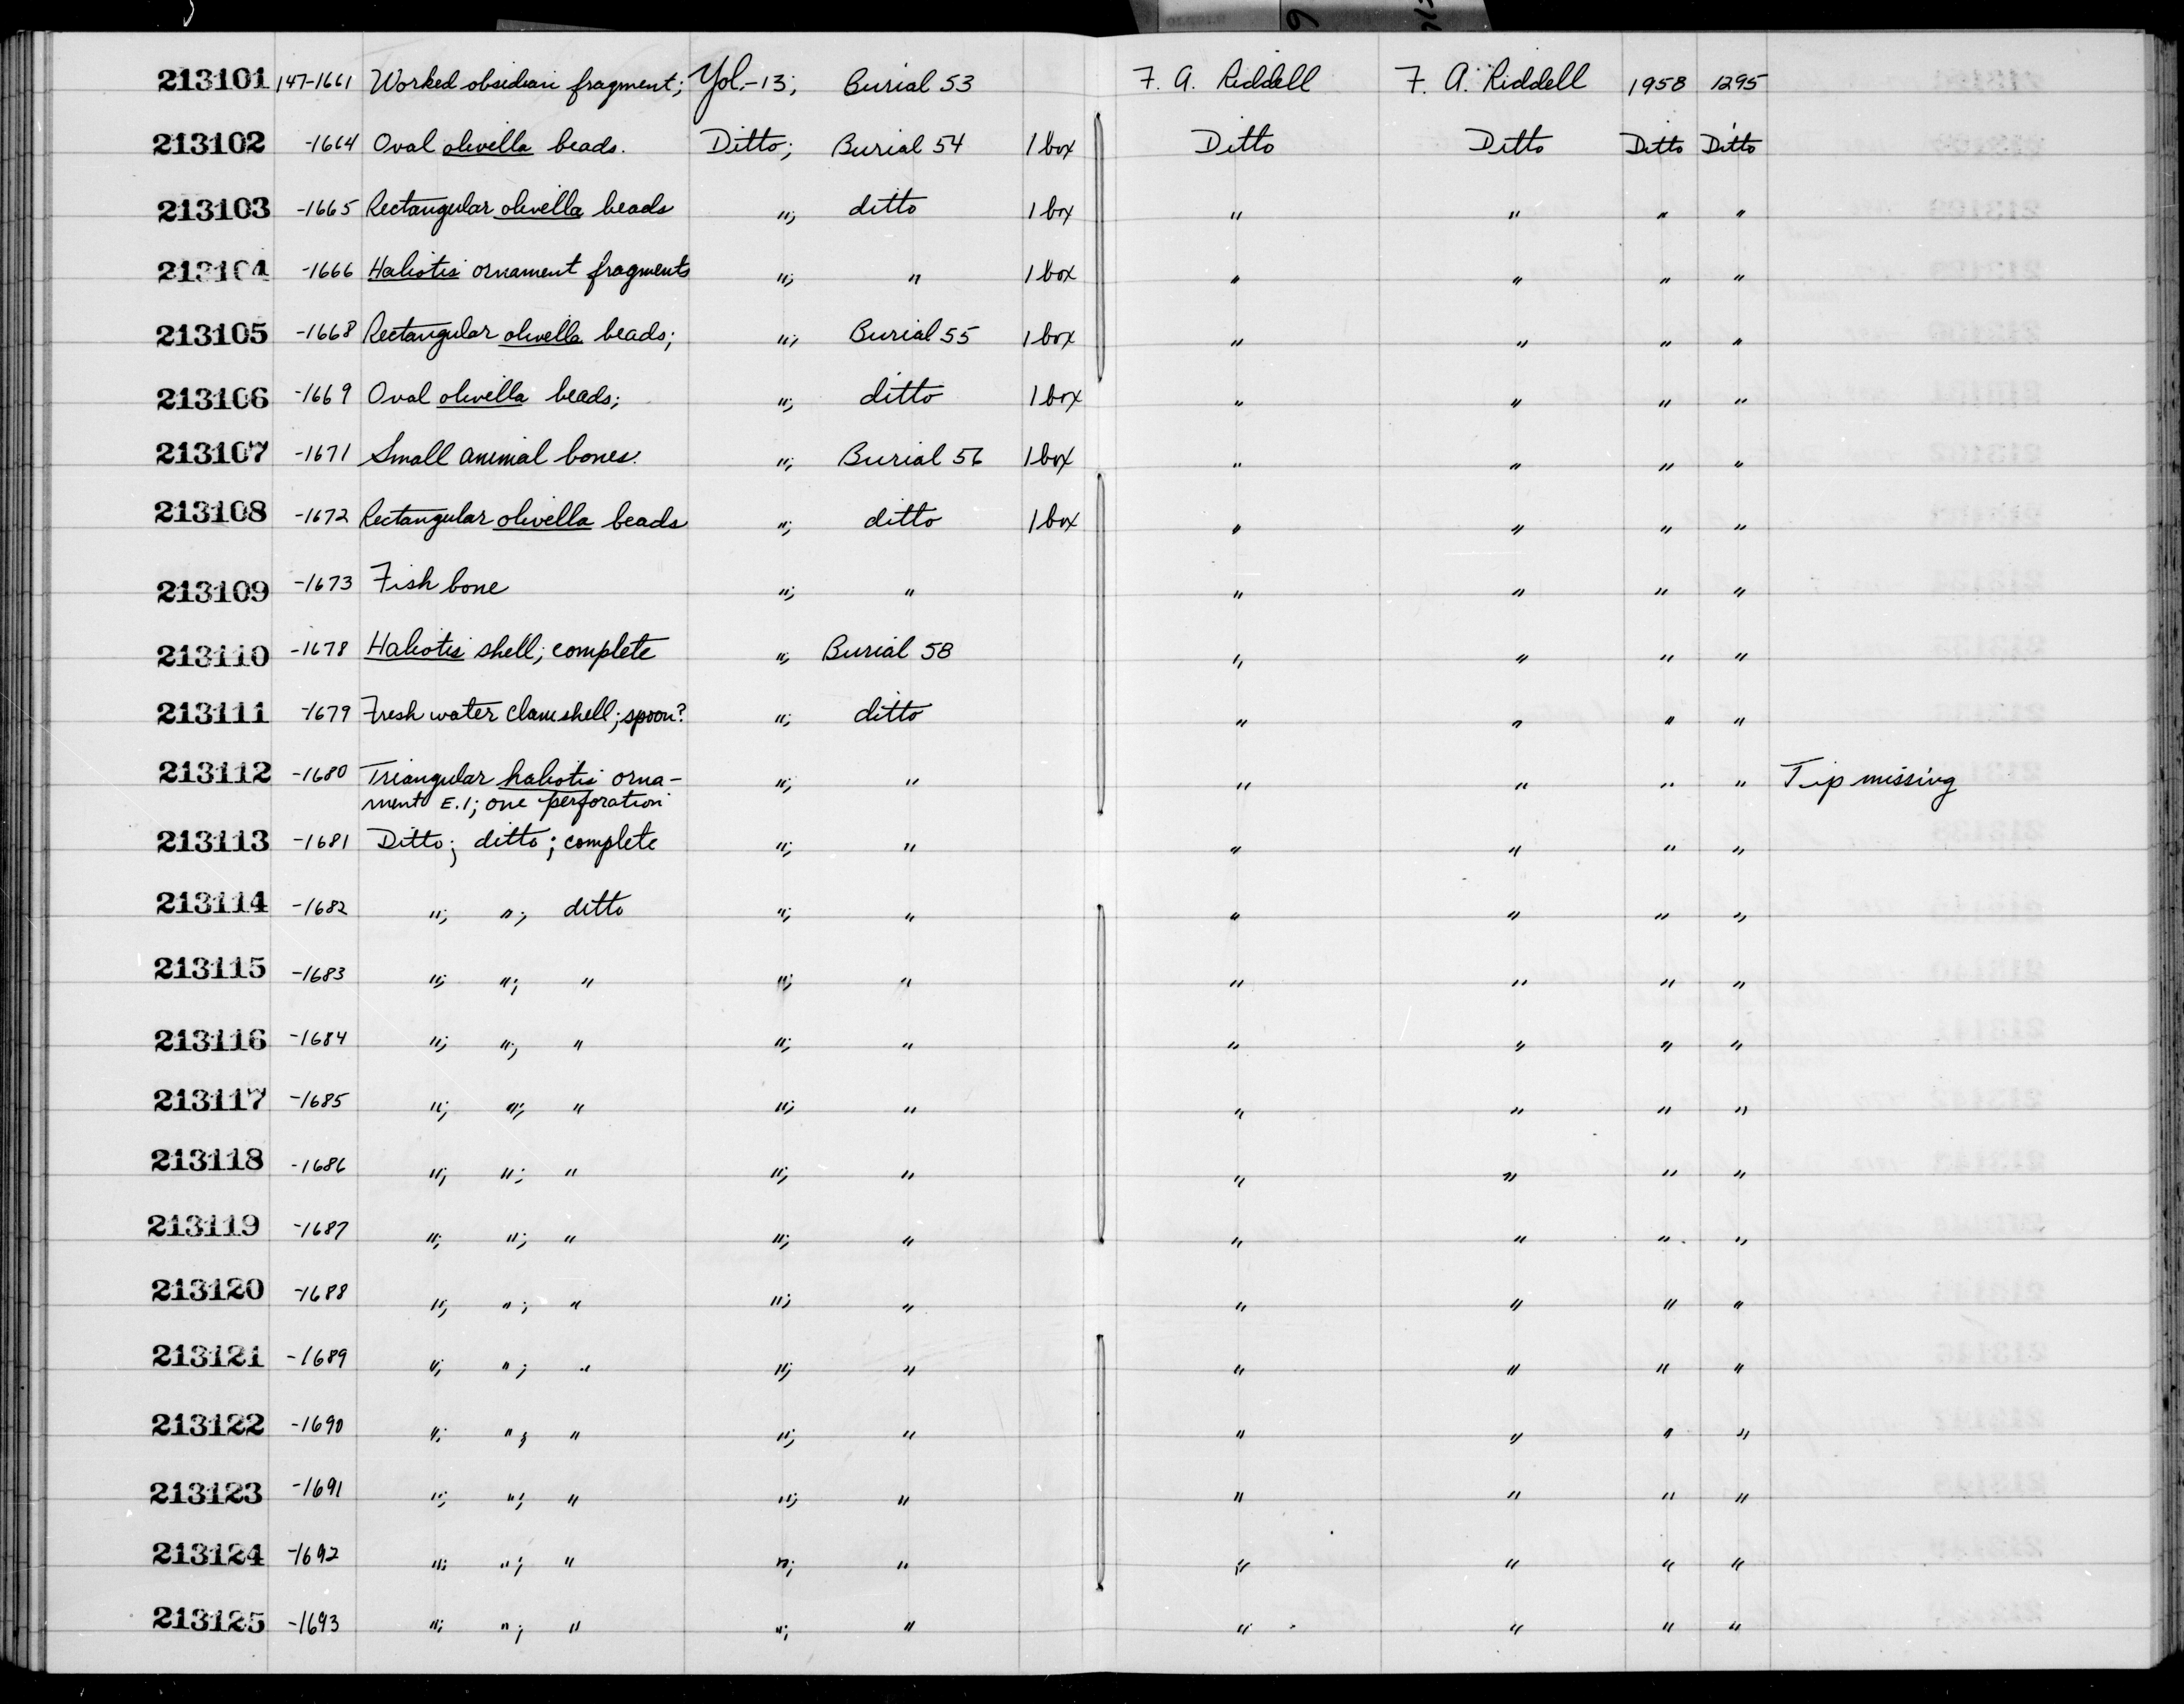 213101 147-1661 Worked obsidian fragment; Yol.-13; Burial 53 F. A. Riddell F. A. Riddell 1958 1295
213102 -1664 Oval olivella beads. Ditto; Burial 54 1 box Ditto Ditto Ditto Ditto
213103 -1665 Rectangular olivella beads "; ditto 1 box " " " "
213104 -1666 Haliotis ornament fragments "; " 1 box " " " "
213105 -1668 Rectangular olivella beads; "; Burial 55 1 box " " " "
213106 -1669 Oval olivella beads; "; ditto 1 box " " " "
213107 -1671 Small animal bones. "; Burial 56 1 box " " " "
213108 -1672 Rectangular olivella beads "; ditto 1 box " " " "
213109 -1673 Fish bone "; " " " " "
213110 -1678 Haliotis shell; complete "; Burial 58 " " " "
213111 -1679 Fresh water clam shell; spoon? "; ditto " " " "
213112 -1680 Triangular haliotis orna- "; " " " " " Tip missing
ment E.1; one perforation
213113 -1681 Ditto; ditto; complete "; " " " " "
213114 -1682 "; "; ditto "; " " " " "
213115 -1683 "; "; " "; " " " " "
213116 -1684 "; "; " "; " " " " "
213117 -1685 "; "; " "; " " " " "
213118 -1686 "; "; " "; " " " " "
213119 -1687 "; "; " "; " " " " "
213120 -1688 "; "; " "; " " " " "
213121 -1689 "; "; " "; " " " " "
213122 -1690 "; "; " "; " " " " "
213123 -1691 "; "; " "; " " " " "
213124 -1692 "; "; " "; " " " " "
213125 -1693 "; "; " "; " " " " "